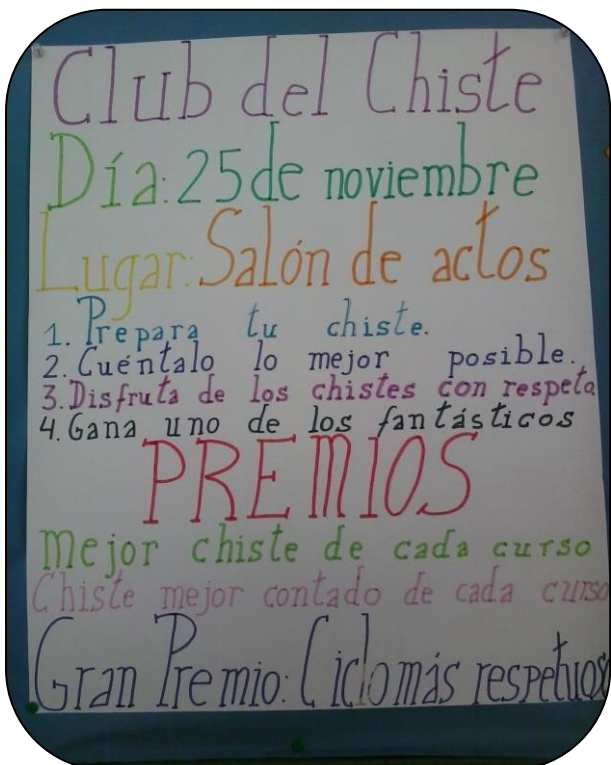 Club del Chiste
Día: 25 de noviembre
Lugar: Salón de actos
1. Prepara tu chiste.
2. Cuéntalo lo mejor posible.
3. Disfruta de los chistes con respeto
4. Gana uno de los fantásticos
PREMIOS
Mejor chiste de cada curso
Chiste mejor contado de cada curso
Gran Premio: Ciclo más respetuoso